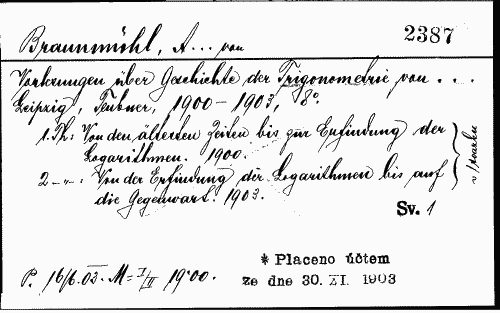 Braunmühl, A... von
2387
Vorlesungen über Geschichte der Trigonometrie von ...
Leipzig, Teubner, 1900-1903, 8°.
1. Th.: Von den ältesten Zeiten bis zur Erfindung der
Logarithmen. 1900.
2 -"- : Von der Erfindung der Logarithmen bis auf
die Gegenwart. 1903.
v 1 svazku
Sv. 1
* Placeno účtem
ze dne 30. XI. 1903
P. 16/6.03. M = I/II 19·00.